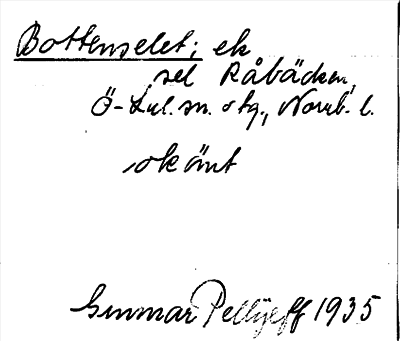 Bottenselet; ek
sel Råbäcken,
Ö-Lul. sn. o tg., Norrb. l.
okänt
Gunnar Pellijeff 1935